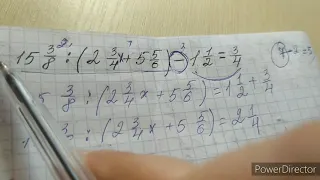 15 3/8 : (2 3/4 x + 5 5/6) - 1 1/2 = 3/4
5 3/8 : (2 3/4 x + 5 5/6) = 1 1/2 + 3/4
: (2 3/4 x + 5 5/6) = 2 1/4
PowerDirector